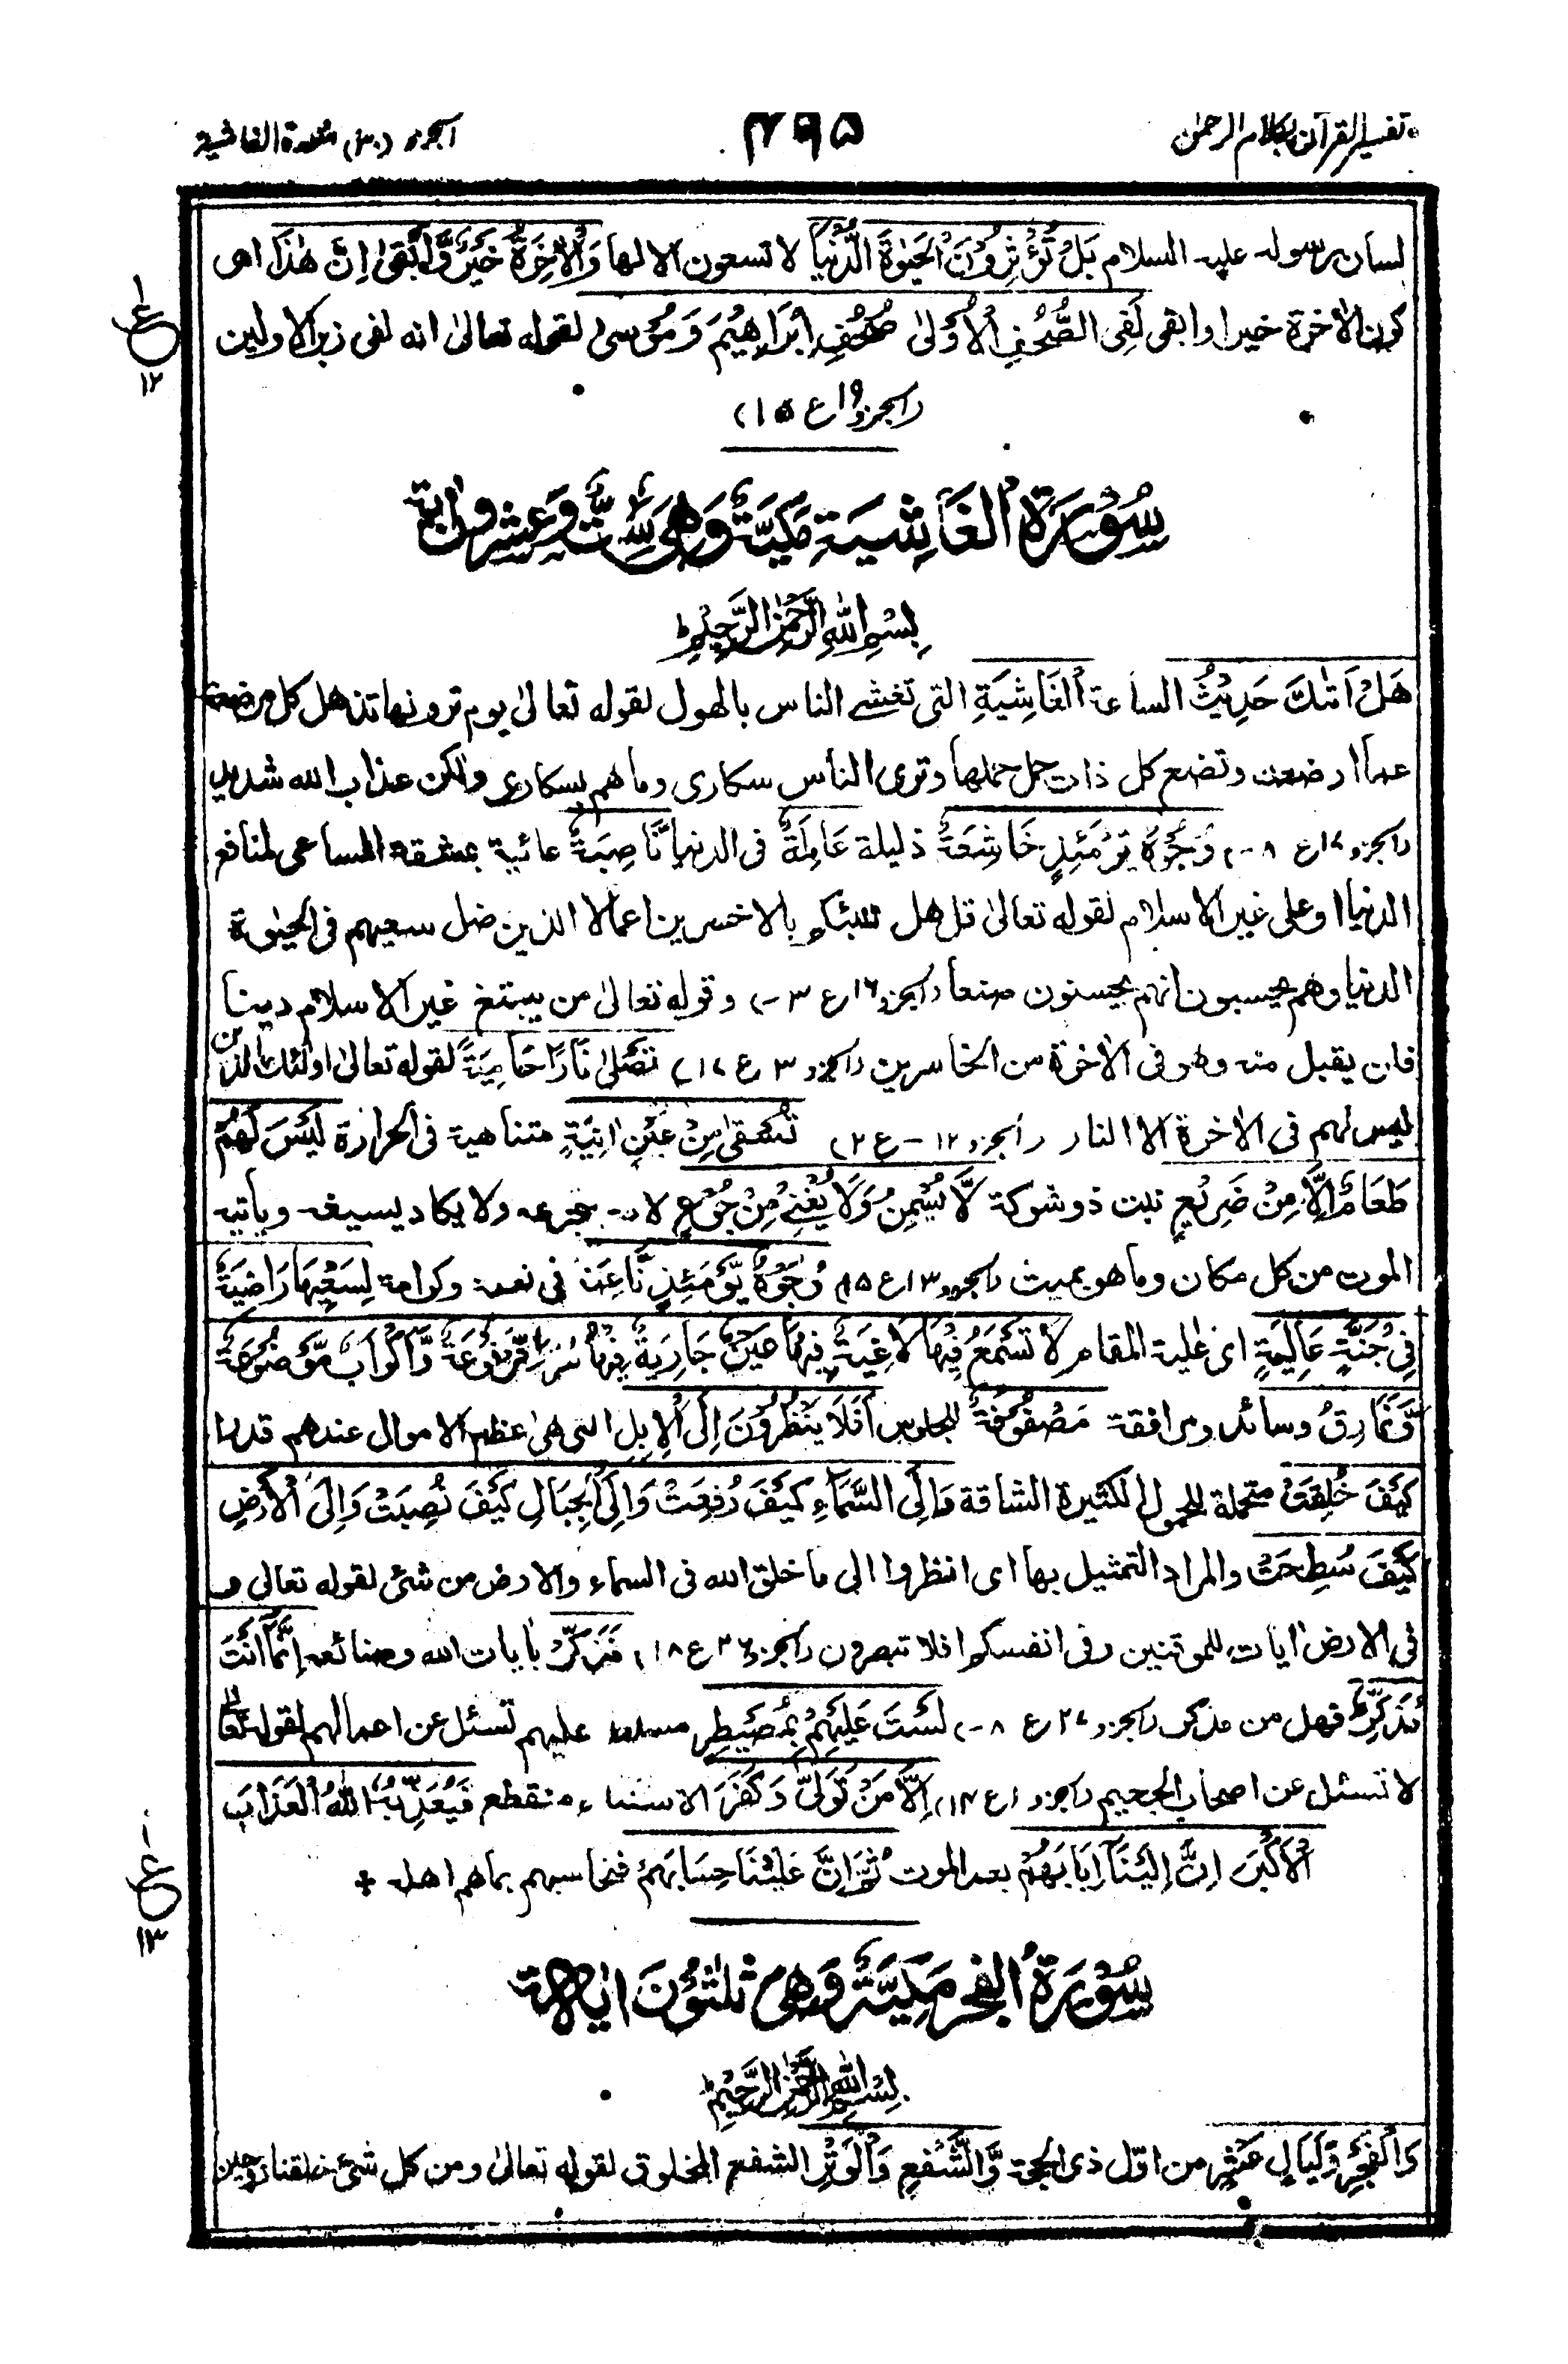 تفسير القرآن بكلام الرحمٰن
٣٩٥
الجزء (٣٠) سورة الغاشية
لسان رسوله عليه السلام بَلْ تُؤْثِرُوْنَ الْحَيٰوةَ الدُّنْيَا لا تسعون الا لها وَالْاٰخِرَةُ خَيْرٌ وَّاَبْقٰى اِنَّ هٰذَا اى
كون الاٰخرة خيرا وابقى لَفِى الصُّحُفِ الْاُوْلٰى صُحُفِ اِبْرَاهِيْمَ وَمُوْسٰى لقوله تعالىٰ انه لفى زبر الاولين
(الجزو ١٩ ع ١٥)
ع
١٢
سُوْرَةُ الْغَاشِيَةِ مَكِّيَّةٌ وَهِىَ سِتٌّ وَّعِشْرُوْنَ اٰيَة
بِسْمِ اللهِ الرَّحْمٰنِ الرَّحِيْمِ
هَلْ اَتٰىكَ حَدِيْثُ الساعة الْغَاشِيَةِ التى تغشے الناس بالهول لقوله تعالىٰ يوم ترونها تذهل كل مرضعة
عما ارضعت وتضع كل ذات حمل حملها وترى الناس سكارى وما هم بسكارى ولكن عذاب الله شديد
(الجزو ١٧ ع ٨) وُجُوْهٌ يَّوْمَئِذٍ خَاشِعَةٌ ذليلة عَامِلَةٌ فى الدنيا نَّاصِبَةٌ عانية بمشقة المساعى لمنافع
الدنيا او على غير الاسلام لقوله تعالىٰ قل هل ننبئكم بالاخسرين اعمالا الذين ضل سعيهم فى الحيٰوة
الدنيا وهم يحسبون انهم يحسنون صنعا (الجزو ١٦ ع ٣) وقوله تعالىٰ من يبتغ غير الاسلام دينا
فلن يقبل منه وهو فى الاٰخرة من الخاسرين (الجزو ٣ ع ١٧) تَصْلٰى نَارًا حَامِيَةً لقوله تعالىٰ اولئك الذين
ليس لهم فى الاٰخرة الا النار (الجزو ١٢ - ع ٢) تُسْقٰى مِنْ عَيْنٍ اٰنِيَةٍ متناهية فى الحرارة لَيْسَ لَهُمْ
طَعَامٌ اِلَّا مِنْ ضَرِيْعٍ نبت ذو شوكة لَّا يُسْمِنُ وَلَا يُغْنِىْ مِنْ جُوْعٍ يتجرعه ولا يكاد يسيغه وياتيه
الموت من كل مكان وما هو بميت (الجزو ١٣ ع ١٥) وُجُوْهٌ يَّوْمَئِذٍ نَّاعِمَةٌ فى نعمة وكرامة لِسَعْيِهَا رَاضِيَةٌ
فِىْ جَنَّةٍ عَالِيَةٍ اى عٰلية المقام لَا تَسْمَعُ فِيْهَا لَاغِيَةً فِيْهَا عَيْنٌ جَارِيَةٌ فِيْهَا سُرُرٌ مَّرْفُوْعَةٌ وَّاَكْوَابٌ مَّوْضُوْعَةٌ
وَّنَمَارِقُ وسائد ومرافقة مَصْفُوْفَةٌ للجلوس اَفَلَا يَنْظُرُوْنَ اِلَى الْاِبِلِ التى هى اعظم الاموال عندهم قدرا
كَيْفَ خُلِقَتْ متحملة للحمول الكثيرة الشاقة وَاِلَى السَّمَآءِ كَيْفَ رُفِعَتْ وَاِلَى الْجِبَالِ كَيْفَ نُصِبَتْ وَاِلَى الْاَرْضِ
كَيْفَ سُطِحَتْ والمراد التمثيل بها اى انظروا الى ما خلق الله فى السماء والارض من شئ لقوله تعالى و
فى الارض اٰيات للموقنين وفى انفسكم افلا تبصرون (الجزو ٢٦ ع ١٨) فَذَكِّرْ باٰيات الله وصنائعه اِنَّمَا اَنْتَ
مُذَكِّرٌ فهل من مدكر (الجزو ٢٧ ع ٨) لَسْتَ عَلَيْهِمْ بِمُصَيْطِرٍ مسلط عليهم تسئل عن اعمالهم لقوله تعالىٰ
لا تسئل عن اصحاب الجحيم (الجزو ١ ع ١٤) اِلَّا مَنْ تَوَلّٰى وَكَفَرَ الاستثناء منقطع فَيُعَذِّبُهُ اللهُ الْعَذَابَ
الْاَكْبَرَ اِنَّ اِلَيْنَا اِيَابَهُمْ بعد الموت ثُمَّ اِنَّ عَلَيْنَا حِسَابَهُمْ فنحاسبهم بما هم اهله *
ع
١٣
سُوْرَةُ الْفَجْرِ مَكِّيَّةٌ وَهِىَ ثَلٰثُوْنَ اٰيَة
بِسْمِ اللهِ الرَّحْمٰنِ الرَّحِيْمِ
وَالْفَجْرِ وَلَيَالٍ عَشْرٍ من اوّل ذى الحجة وَّالشَّفْعِ وَالْوَتْرِ الشفع المخلوق لقوله تعالىٰ ومن كل شئ خلقنا زوجين